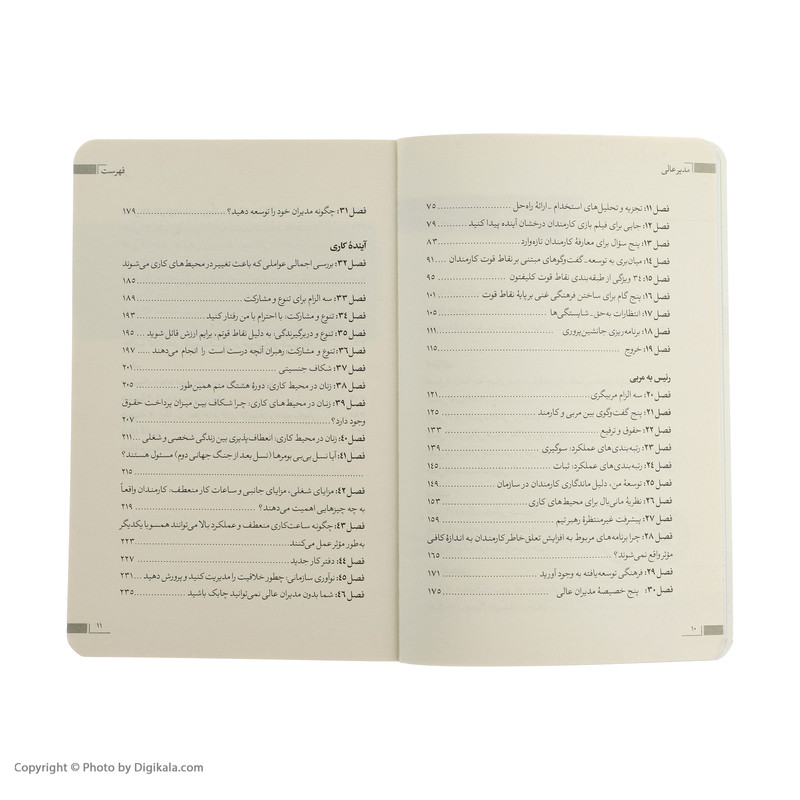 مدیر عالی
فصل ۱۱: تجزیه و تحلیل‌های استخدام ـ ارائهٔ راه‌حل ........ ۷۵
فصل ۱۲: جایی برای فیلم بازی کارمندان درخشان آینده پیدا کنید ........ ۷۹
فصل ۱۳: پنج سؤال برای معارفهٔ کارمندان تازه‌وارد ........ ۸۳
فصل ۱۴: میان‌بری به توسعه ـ گفت‌وگوهای مبتنی بر نقاط قوت کارمندان .... ۹۱
فصل ۱۵: ۳۴ ویژگی از طبقه‌بندی نقاط قوت کلیفتون ........ ۹۵
فصل ۱۶: پنج گام برای ساختن فرهنگی غنی بر پایهٔ نقاط قوت ........ ۱۰۱
فصل ۱۷: انتظارات به‌حق ـ شایستگی‌ها ........ ۱۰۵
فصل ۱۸: برنامه‌ریزی جانشین‌پروری ........ ۱۱۱
فصل ۱۹: خروج ........ ۱۱۵
رئیس به مربی
فصل ۲۰: سه الزام مربیگری ........ ۱۲۱
فصل ۲۱: پنج گفت‌وگوی بین مربی و کارمند ........ ۱۲۵
فصل ۲۲: حقوق و ترفیع ........ ۱۳۳
فصل ۲۳: رتبه‌بندی‌های عملکرد: سوگیری ........ ۱۳۹
فصل ۲۴: رتبه‌بندی‌های عملکرد: ثبات ........ ۱۴۵
فصل ۲۵: توسعهٔ من، دلیل ماندگاری کارمندان در سازمان ........ ۱۴۹
فصل ۲۶: نظریهٔ مانی‌بال برای محیط‌های کاری ........ ۱۵۳
فصل ۲۷: پیشرفت غیرمنتظرهٔ رهبر تیم ........ ۱۵۹
فصل ۲۸: چرا برنامه‌های مربوط به افزایش تعلق خاطر کارمندان به اندازهٔ کافی
مؤثر واقع نمی‌شوند؟ ........ ۱۶۵
فصل ۲۹: فرهنگی توسعه‌یافته به وجود آورید ........ ۱۷۱
فصل ۳۰: پنج خصیصهٔ مدیران عالی ........ ۱۷۵
۱۰
فهرست
فصل ۳۱: چگونه مدیران خود را توسعه دهید؟ ........ ۱۷۹
آیندهٔ کاری
فصل ۳۲: بررسی اجمالی عواملی که باعث تغییر در محیط‌های کاری می‌شوند
........ ۱۸۵
فصل ۳۳: سه الزام برای تنوع و مشارکت ........ ۱۸۹
فصل ۳۴: تنوع و مشارکت: با احترام با من رفتار کنید ........ ۱۹۳
فصل ۳۵: تنوع و دربرگیرندگی: به دلیل نقاط قوتم، برایم ارزش قائل شوید ... ۱۹۵
فصل ۳۶: تنوع و مشارکت: رهبران آنچه درست است را انجام می‌دهند ..... ۱۹۷
فصل ۳۷: شکاف جنسیتی ........ ۲۰۱
فصل ۳۸: زنان در محیط کاری: دورهٔ هشتگ منم همین‌طور ........ ۲۰۵
فصل ۳۹: زنان در محیط‌های کاری: چرا شکاف بین میزان پرداخت حقوق
وجود دارد؟ ........ ۲۰۷
فصل ۴۰: زنان در محیط کاری: انعطاف‌پذیری بین زندگی شخصی و شغلی .... ۲۱۱
فصل ۴۱: آیا نسل بی‌بی بومرها (نسل بعد از جنگ جهانی دوم) مسئول هستند؟
........ ۲۱۵
فصل ۴۲: مزایای شغلی، مزایای جانبی و ساعات کار منعطف: کارمندان واقعاً
به چه چیزهایی اهمیت می‌دهند؟ ........ ۲۱۹
فصل ۴۳: چگونه ساعت‌کاری منعطف و عملکرد بالا می‌توانند همسو با یکدیگر
به‌طور مؤثر عمل می‌کنند ........ ۲۲۳
فصل ۴۴: دفتر کار جدید ........ ۲۲۷
فصل ۴۵: نوآوری سازمانی: چطور خلاقیت را مدیریت کنید و پرورش دهید .... ۲۳۱
فصل ۴۶: شما بدون مدیران عالی نمی‌توانید چابک باشید ........ ۲۳۵
۱۱
Copyright © Photo by Digikala.com